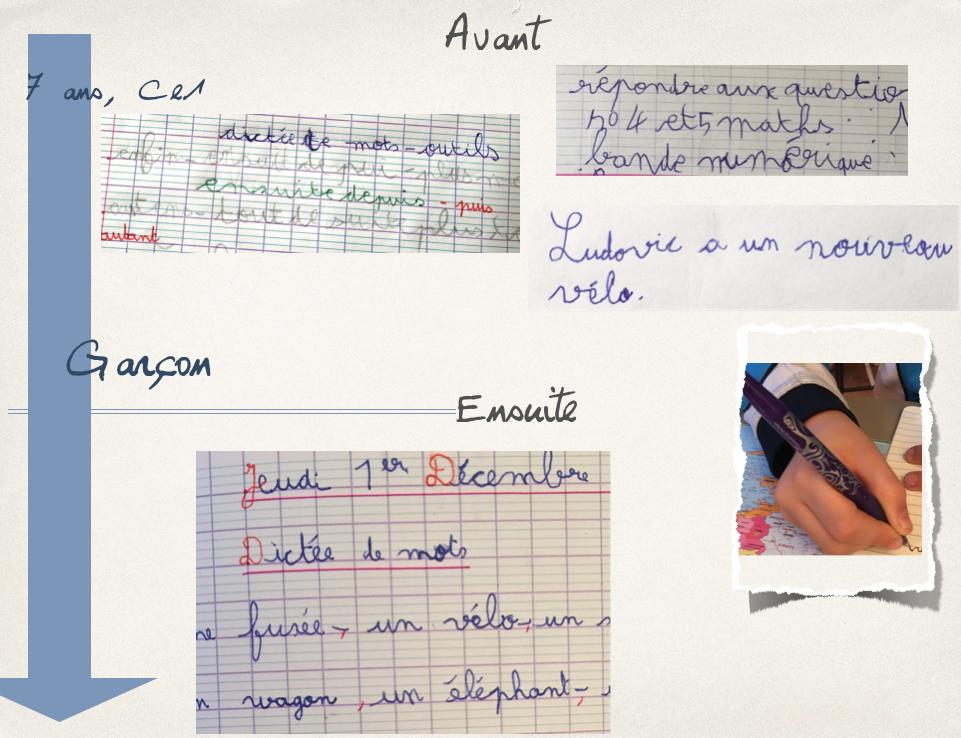 Avant
7 ans, CE1
dictée de mots-outils
enfin - ensuite de puis - plus
ensuite depuis - puis
tout de suite plus
autant
répondre aux questio
no 4 et 5 maths.
bande numérique
Ludovic a un nouveau
vélo.
Garçon
Ensuite
Jeudi 1er Décembre
Dictée de mots
ne fusée -, un vélo -, un
n wagon, un éléphant -,